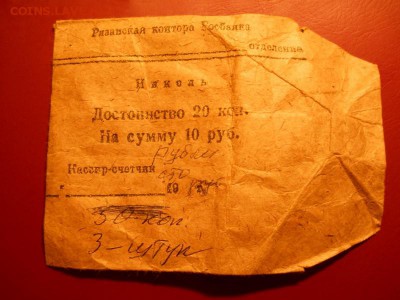 COINS.LAV
Рязанская контора Госбанка
отделение
Никель
Достоинство 20 коп.
На сумму 10 руб.
Рубли
Кассир-счетчик
19
50 коп.
3-штук